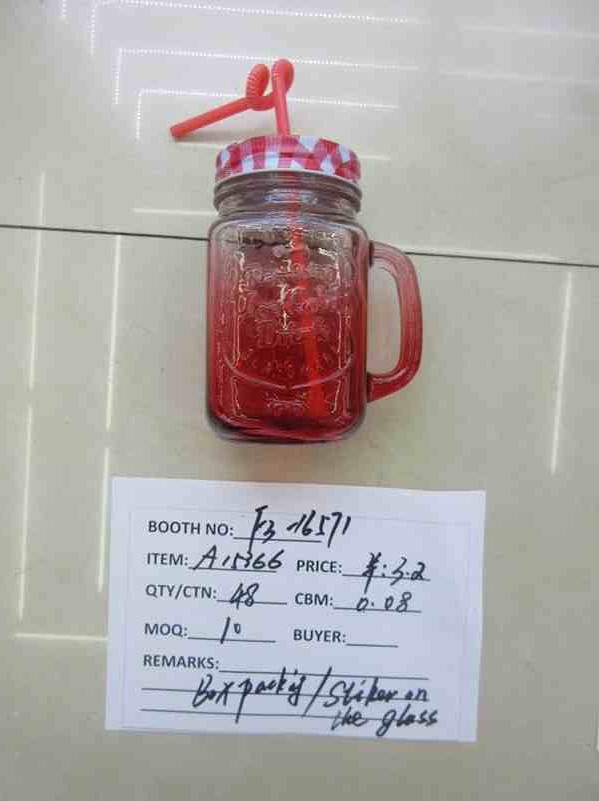 BOOTH NO: F3-16571
ITEM: A15366 PRICE: ¥:3.2
QTY/CTN: 48 CBM: 0.08
MOQ: 10 BUYER:
REMARKS:
Box packig / Stiker on
the glass